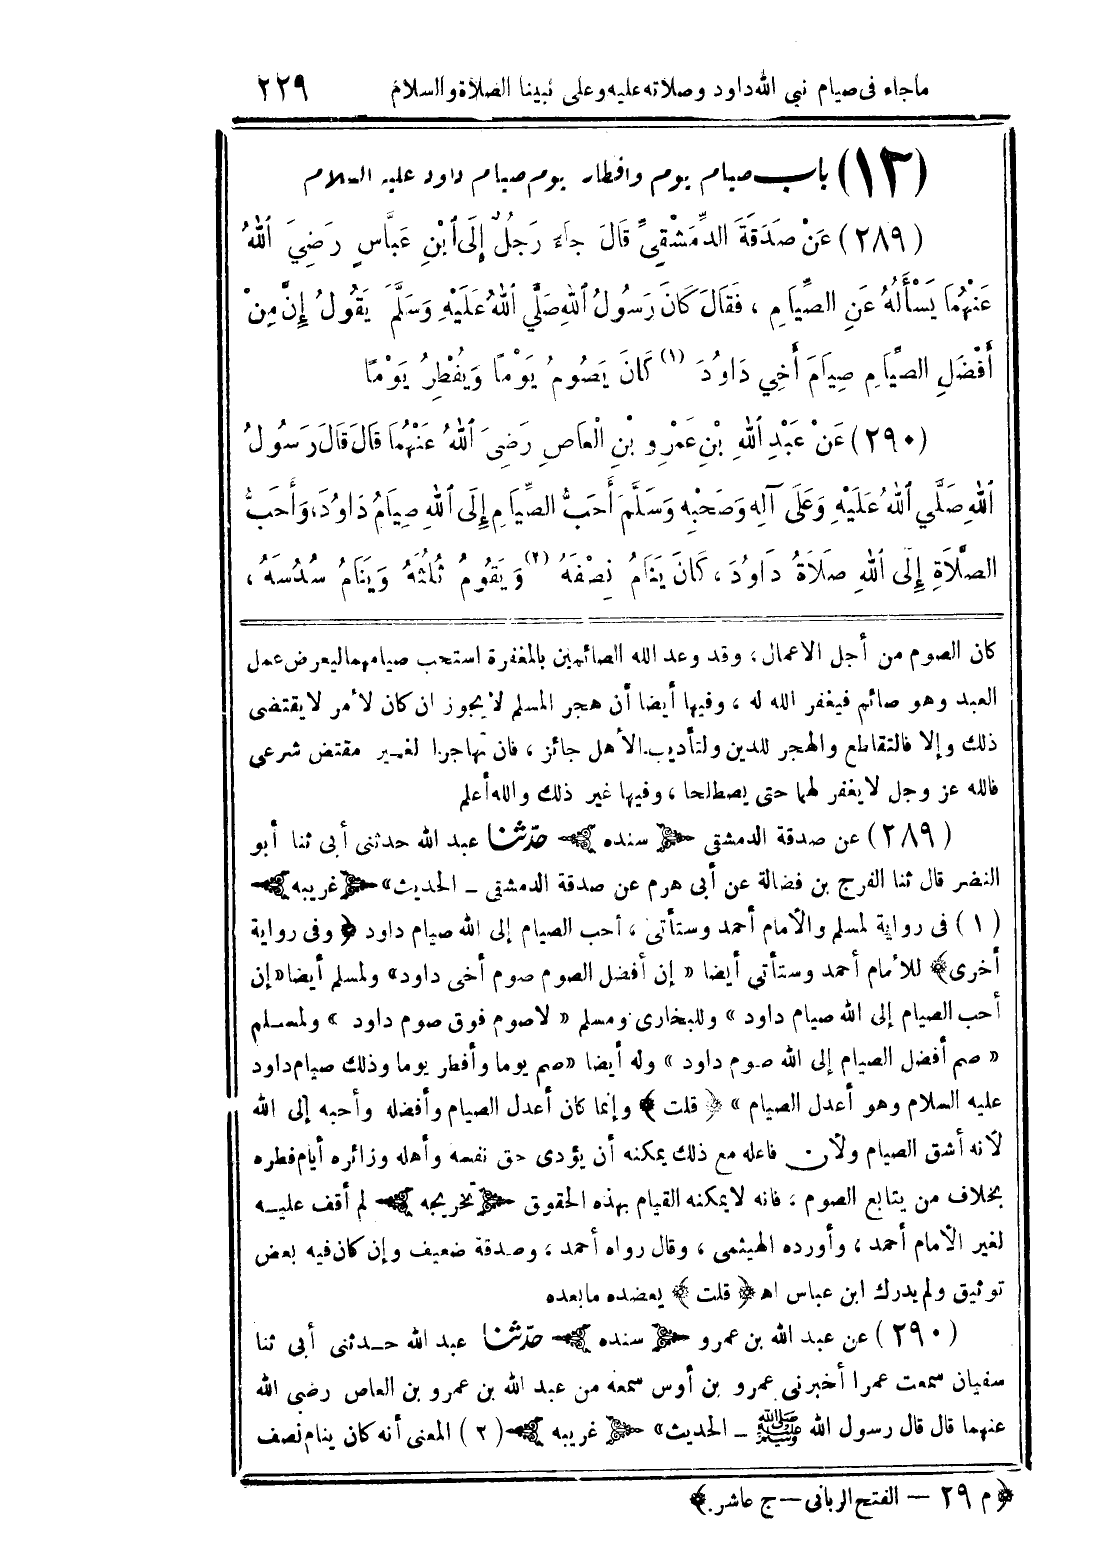 ماجاء فى صيام نبي الله داود وصلاته عليه وعلى نبينا الصلاة والسلام ٢٢٩
(١٣) باب صيام يوم وافطار يوم صيام داود عليه السلام
(٢٨٩) عَنْ صَدَقَةَ الدِّمَشْقِيِّ قَالَ جَاءَ رَجُلٌ إِلَى ٱبْنِ عَبَّاسٍ رَضِيَ ٱللهُ
عَنْهُمَا يَسْأَلُهُ عَنِ الصِّيَامِ ، فَقَالَ كَانَ رَسُولُ ٱللهِ صَلَّي ٱللهُ عَلَيْهِ وَسَلَّمَ يَقُولُ إِنَّ مِنْ
أَفْضَلِ الصِّيَامِ صِيَامَ أَخِي دَاوُدَ (١) كَانَ يَصُومُ يَوْمًا وَيُفْطِرُ يَوْمًا
(٢٩٠) عَنْ عَبْدِ ٱللهِ بْنِ عَمْرِو بْنِ الْعَاصِ رَضِيَ ٱللهُ عَنْهُمَا قَالَ قَالَ رَسُولُ
ٱللهِ صَلَّي ٱللهُ عَلَيْهِ وَعَلَى آلِهِ وَصَحْبِهِ وَسَلَّمَ أَحَبُّ الصِّيَامِ إِلَى ٱللهِ صِيَامُ دَاوُدَ، وَأَحَبُّ
الصَّلَاةِ إِلَى ٱللهِ صَلَاةُ دَاوُدَ ، كَانَ يَنَامُ نِصْفَهُ (٢) وَيَقُومُ ثُلُثَهُ وَيَنَامُ سُدُسَهُ ،
كان الصوم من أجل الاعمال ، وقد وعد الله الصائمين بالمغفرة استحب صيامهما ليعرض عمل
العبد وهو صائم فيغفر الله له ، وفيها أيضا أن هجر المسلم لا يجوز ان كان لأمر لا يقتضى
ذلك وإلا فالتقاطع والهجر للدين ولتأديب الأهل جائز ، فان تهاجرا لغير مقتض شرعى
فالله عز وجل لا يغفر لهما حتى يصطلحا ، وفيها غير ذلك والله أعلم
(٢٨٩) عن صدقة الدمشقى ﴿ سنده ﴾ حدّثنا عبد الله حدثنى أبى ثنا أبو
النضر قال ثنا الفرج بن فضالة عن أبى هرم عن صدقة الدمشقى ــ الحديث» ﴿ غريبه ﴾
(١) فى رواية لمسلم والأمام أحمد وستأتى ، أحب الصيام إلى الله صيام داود ﴿ وفى رواية
أخرى ﴾ للأمام أحمد وستأتي أيضا « إن أفضل الصوم صوم أخى داود» ولمسلم أيضا «إن
أحب الصيام إلى الله صيام داود » وللبخارى ومسلم « لاصوم فوق صوم داود » ولمسلم
« صم أفضل الصيام إلى الله صوم داود » وله أيضا «صم يوما وأفطر يوما وذلك صيام داود
عليه السلام وهو أعدل الصيام » ﴿ قلت ﴾ وإنما كان أعدل الصيام وأفضله وأحبه إلى الله
لأنه أشق الصيام ولأن فاعله مع ذلك يمكنه أن يؤدى حق نفسه وأهله وزائره أيام فطره
بخلاف من يتابع الصوم ، فانه لايمكنه القيام بهذه الحقوق ﴿ تخريجه ﴾ لم أقف عليه
لغير الأمام أحمد ، وأورده الهيثمى ، وقال رواه أحمد ، وصدقة ضعيف وإن كان فيه بعض
توثيق ولم يدرك ابن عباس اه ﴿ قلت ﴾ يعضده مابعده
(٢٩٠) عن عبد الله بن عمرو ﴿ سنده ﴾ حدّثنا عبد الله حدثنى أبى ثنا
سفيان سمعت عمرا أخبرنى عمرو بن أوس سمعه من عبد الله بن عمرو بن العاص رضى الله
عنهما قال قال رسول الله ﷺ ــ الحديث» ﴿ غريبه ﴾ (٢) المعنى أنه كان ينام نصف
﴿ م ٢٩ — الفتح الربانى — ج عاشر ﴾